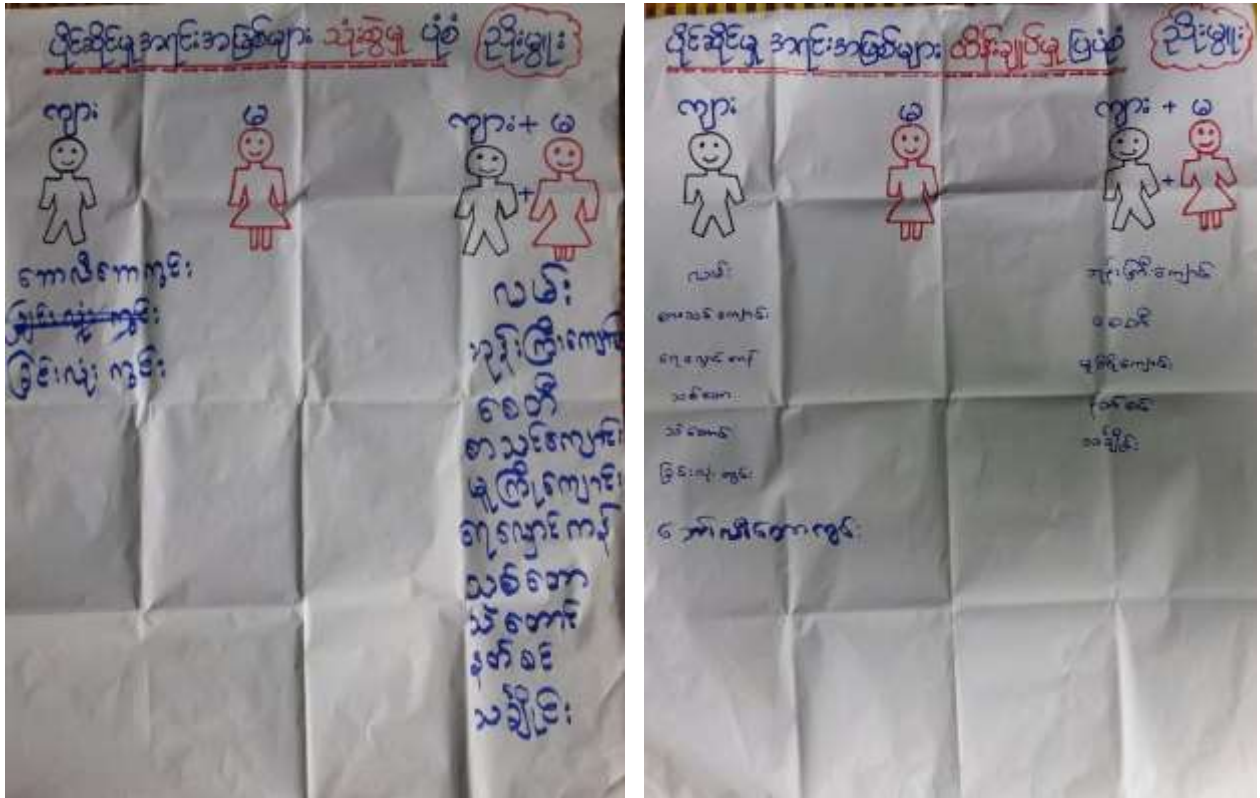 ပိုင်ဆိုင်မှု အရင်းအမြစ်များ သုံးစွဲမှု ပုံစံ
ညိုးမွှူး
ကျား
မ
ကျား + မ
+
ဘောလီဘောကွင်း
ခြင်းလုံး ကွင်း
ခြင်းလုံး ကွင်း
လမ်း
ဘုန်းကြီးကျောင်း
စေတီ
စာသင်ကျောင်း
မူကြိုကျောင်း
ရေလှောင်ကန်
သစ်တော
သဲတောင်
နတ်စင်
သချိုင်း
ပိုင်ဆိုင်မှု အရင်းအမြစ်များ ထိန်းချုပ်မှု ပြပုံစံ
ညိုးမွှူး
ကျား
မ
ကျား + မ
+
လမ်း
စာသင်ကျောင်း
ရေလှောင်ကန်
သစ်တော
သဲတောင်
ခြင်းလုံး ကွင်း
ဘော်လီဘောကွင်း
ဘုန်းကြီးကျောင်း
စေတီ
မူကြိုကျောင်း
နတ်စင်
သချိုင်း